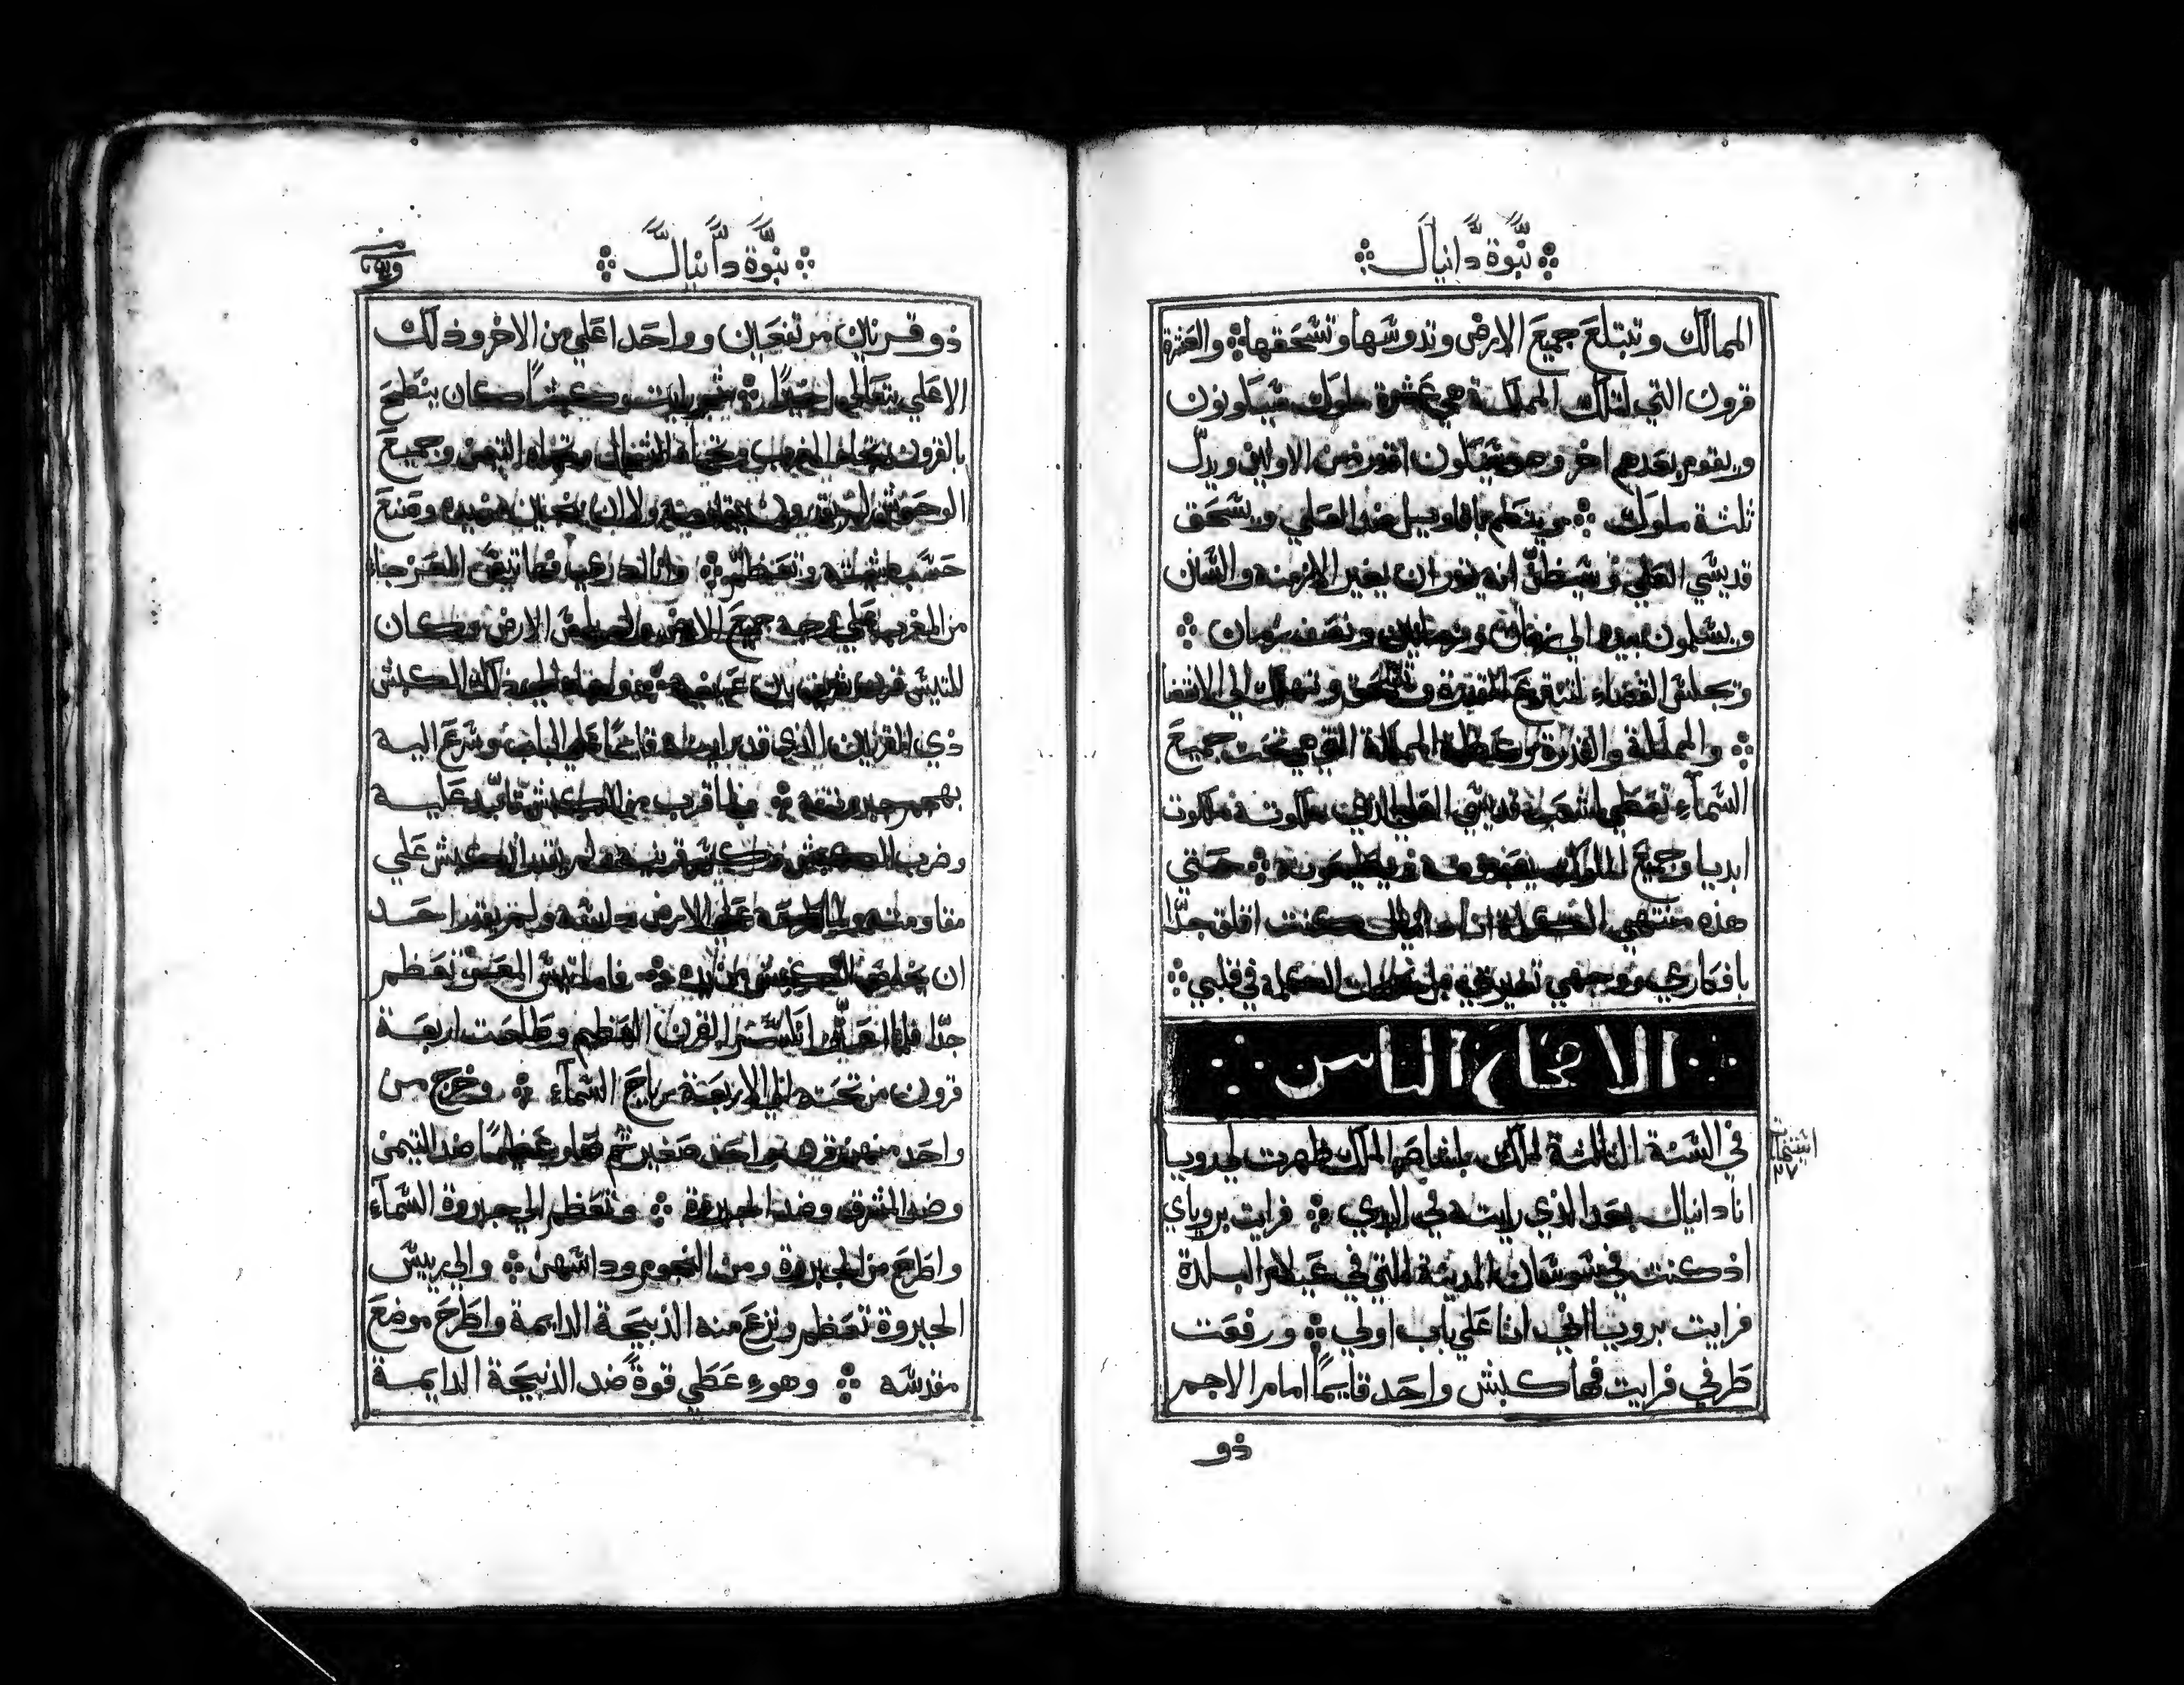 نبوة دانيال
الممالك وتبتلع جميع الارض وتدوسها وتسحقها والعشرة
قرون التي لتلك المملكة هي عشرة ملوك سيكونون
ويقوم بعدهم اخر وهو سيكون اقوى من الاولين ويذل
ثلثة ملوك ويتكلم باقاويل ضد العلي ويسحق
قديسي العلي ويظن انه يقدر ان يغير الازمنة والسنن
ويسلمون بيده الى زمان وزمانين ونصف زمان
ويجلس القضاء لتنزع المقدرة وتسحق وتهلك الى الانقضا
والمملكة والقدرة وعظمة المملكة التي هي تحت جميع
السمآء تعطى لشعب قديسي العلي الذي ملكوته ملكوت
ابديا وجميع الملوك يعبدونه ويطيعونه حتى
هذه منتهى الكلمة انا دانيال كنت اقلق جدًا
بافكاري ووجهي تغير في الكلمة في قلبي
الاصحاح الثامن
في السنة الثالثة لملك بلتشاصر الملك ظهرت لي رويا
انا دانيال بعد الذي رايته في البدي فرايت برؤياي
اذ كنت في شوشان المدينة التي في عيلام البلدة
فرايت برويا اني انا على باب اولي ورفعت
طرفي فرايت فها كبش واحد قايمًا امام الاجم
ذو
نبوة دانيال
ذو قرنين مرتفعين وواحد اعلي من الاخر وذلك
الاعلي يتعالى اخيرًا ثم رايت كبشًا كان ينطح
بالقرون تجاه المغرب وتجاه الشمال وتجاه التيمن وجميع
الوحوش لم تقدر ولا ان ينجين من يده وصنع
حسب مشيته وتعظم وانا فها تيس المعز جاء
من المغرب على وجه جميع الارض ولم يلمس الارض وكان
للتيس قرن بين عينيه وجاء الى ذلك الكبش
ذي القرنين الذي قد رايته قايمًا على الباب وسرع اليه
بهجم جبروته ولما قرب من الكبش عليه
وضرب الكبش وكسر قرنيه ولم يقدر الكبش علي
مقاومته والقاه على الارض داسه ولم يقدر احد
ان يخلص الكبش من يده فاما تيس المعز تعظم
جدًا فلما انكسر القرن العظيم وطلعت اربعة
قرون من تحته الى الاربعة رياح السمآء وخرج من
واحد منهن قرن واحد صغير ثم صار عظيمًا ضد التيمن
وضد المشرق وضد الجبروة وتعظم الى جبروة السمآء
واطرح من الجبروة ومن النجوم وداسهن والى رييس
الجبروة تعظم ونزع منه الذبيحة الدايمة واطرح موضع
مقدسه وهو عطي قوة ضد الذبيحة الدايمة